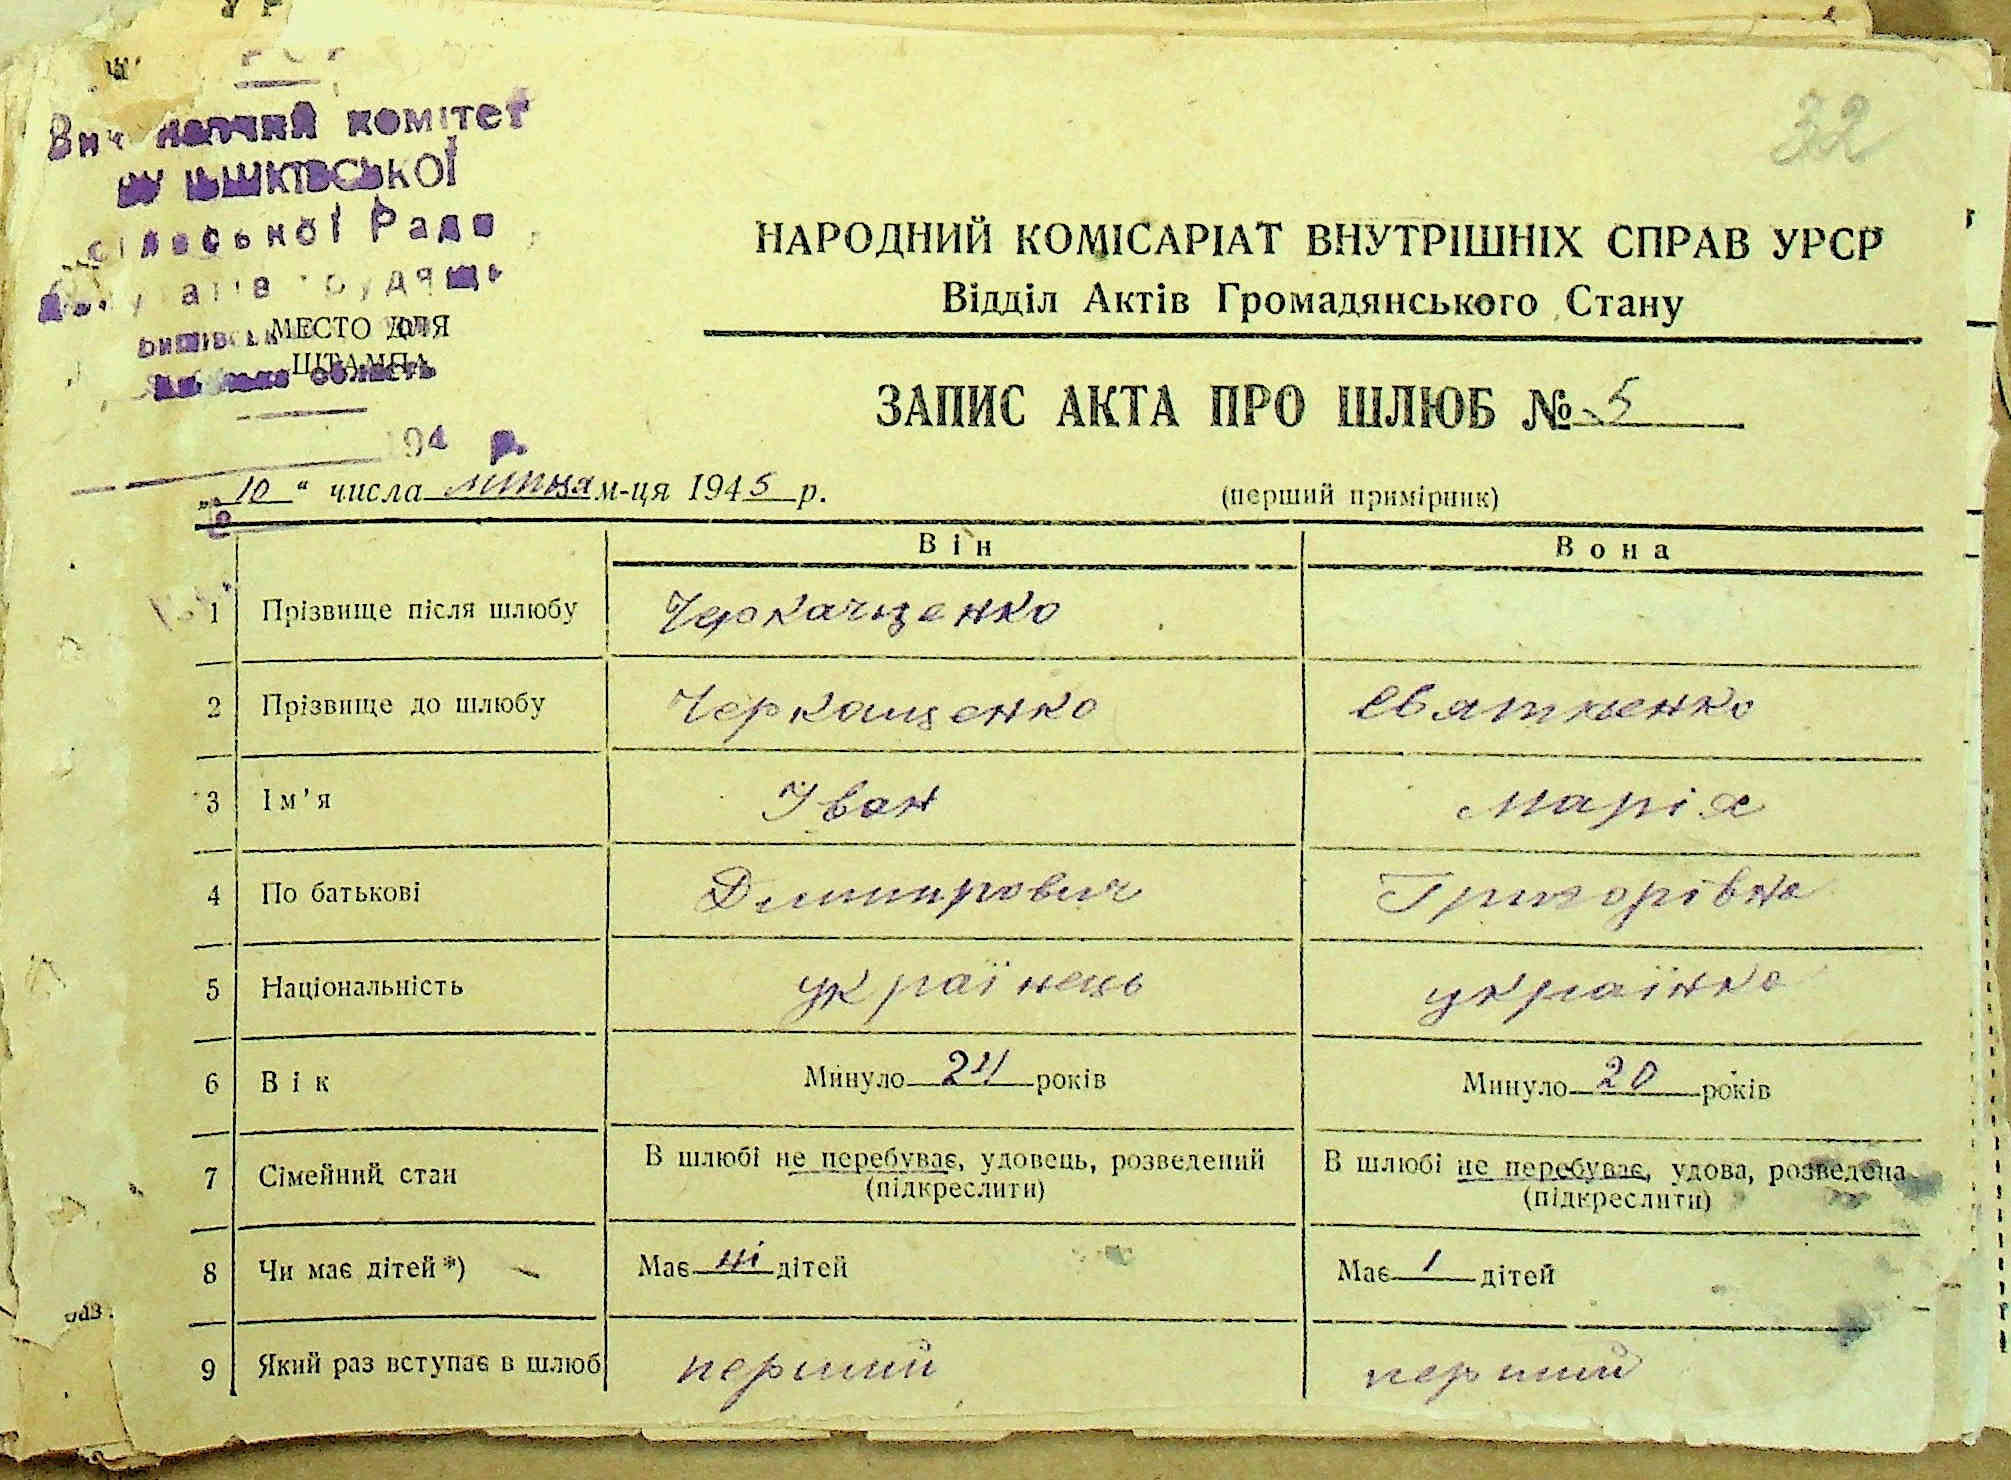 32
комітет
сільської Ради
МЕСТО ДЛЯ
ШТАМПА
область
194 р.
НАРОДНИЙ КОМІСАРІАТ ВНУТРІШНІХ СПРАВ УРСР
Відділ Актів Громадянського Стану
ЗАПИС АКТА ПРО ШЛЮБ № 5
„10“ числа липця м-ця 1945 р.
(перший примірник)
Він Вона
1 Прізвище після шлюбу Черкащенко
2 Прізвище до шлюбу Черкащенко Святненко
3 Ім'я Іван Марія
4 По батькові Дмитрович Григорівна
5 Національність українець українка
6 Вік Минуло 24 років Минуло 20 років
7 Сімейний стан В шлюбі не перебуває, удовець, розведений В шлюбі не перебуває, удова, розведена
(підкреслити) (підкреслити)
8 Чи має дітей*) Має ні дітей Має 1 дітей
9 Який раз вступає в шлюб перший перший